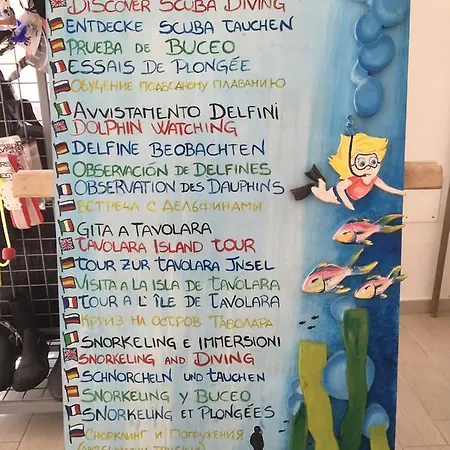 DISCOVER SCUBA DIVING
ENTDECKE SCUBA TAUCHEN
PRUEBA DE BUCEO
ESSAIS DE PLONGÉE
ОБУЧЕНИЕ ПОДВОДНОМУ ПЛАВАНИЮ
AVVISTAMENTO DELFINI
DOLPHIN WATCHING
DELFINE BEOBACHTEN
OBSERVACIÓN DE DELFINES
OBSERVATION DES DAUPHINS
ВСТРЕЧА С ДЕЛЬФИНАМИ
GITA A TAVOLARA
TAVOLARA ISLAND TOUR
TOUR ZUR TAVOLARA INSEL
VISITA A LA ISLA DE TAVOLARA
TOUR A L'ÎLE DE TAVOLARA
КРУИЗ НА ОСТРОВ ТАВОЛАРА
SNORKELING E IMMERSIONI
SNORKELING AND DIVING
SCHNORCHELN UND TAUCHEN
SNORKELING Y BUCEO
SNORKELING ET PLONGÉES
СНОРКЛИНГ И ПОГРУЖЕНИЯ